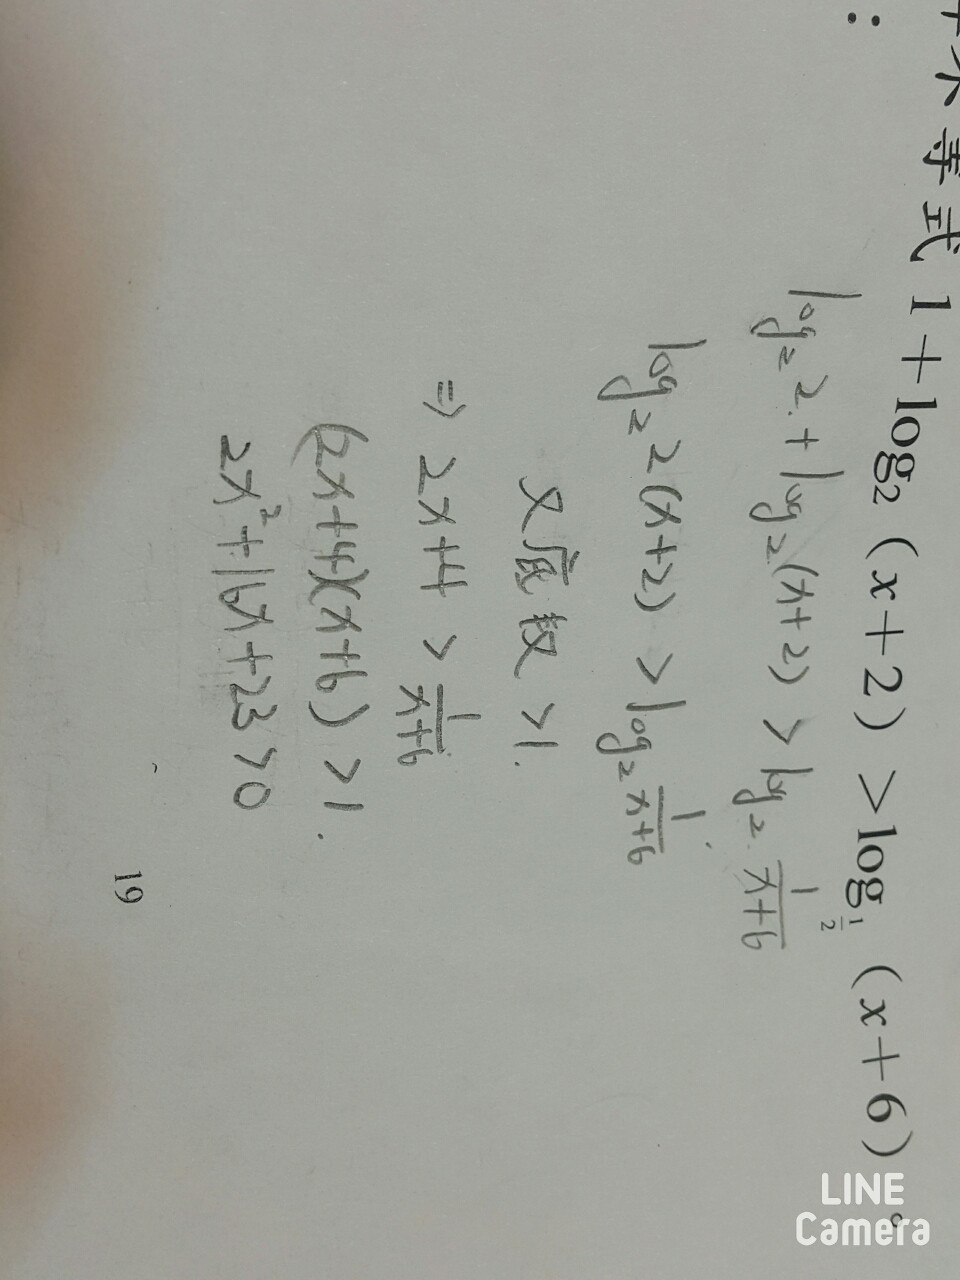 不等式 1+log₂(x+2)>log_{1/2}(x+6)。
:
log₂2+log₂(x+2)>log₂ 1/(x+6)
log₂2(x+2)>log₂ 1/(x+6)
又底数>1.
⇒2x+4>1/(x+6)
(2x+4)(x+6)>1.
2x²+16x+23>0
19
LINE
Camera